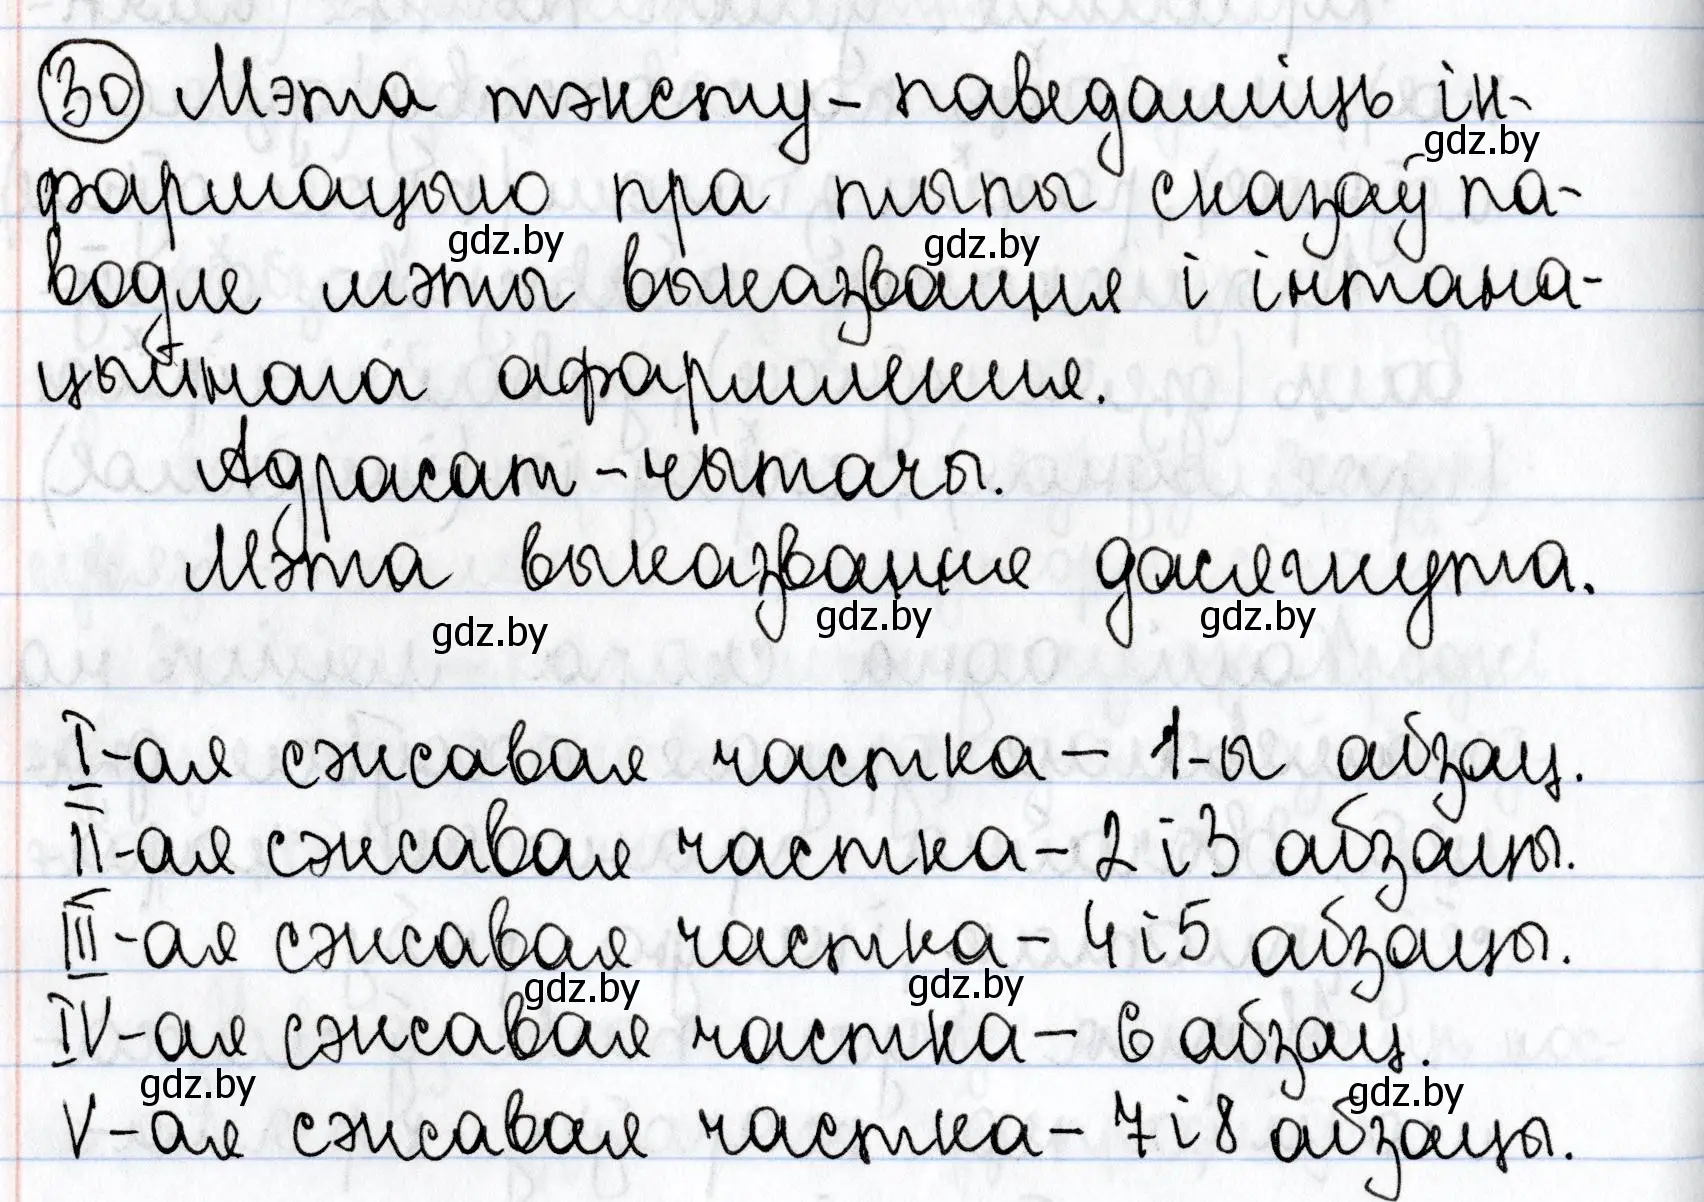 30 Мэта тэксту – паведаміць ін-
gdz.by
фармацыю пра тыпы сказаў па-
gdz.by gdz.by
водле мэты выказвання і інтана-
цыйнага афармлення.
Адрасат – чытачы.
Мэта выказвання дасягнута.
gdz.by gdz.by gdz.by
I-ая сэнсавая частка – 1-ы абзац.
II-ая сэнсавая частка – 2 і 3 абзацы.
III-ая сэнсавая частка – 4 і 5 абзацы.
gdz.by gdz.by
IV-ая сэнсавая частка – 6 абзац.
gdz.by gdz.by
V-ая сэнсавая частка – 7 і 8 абзацы.